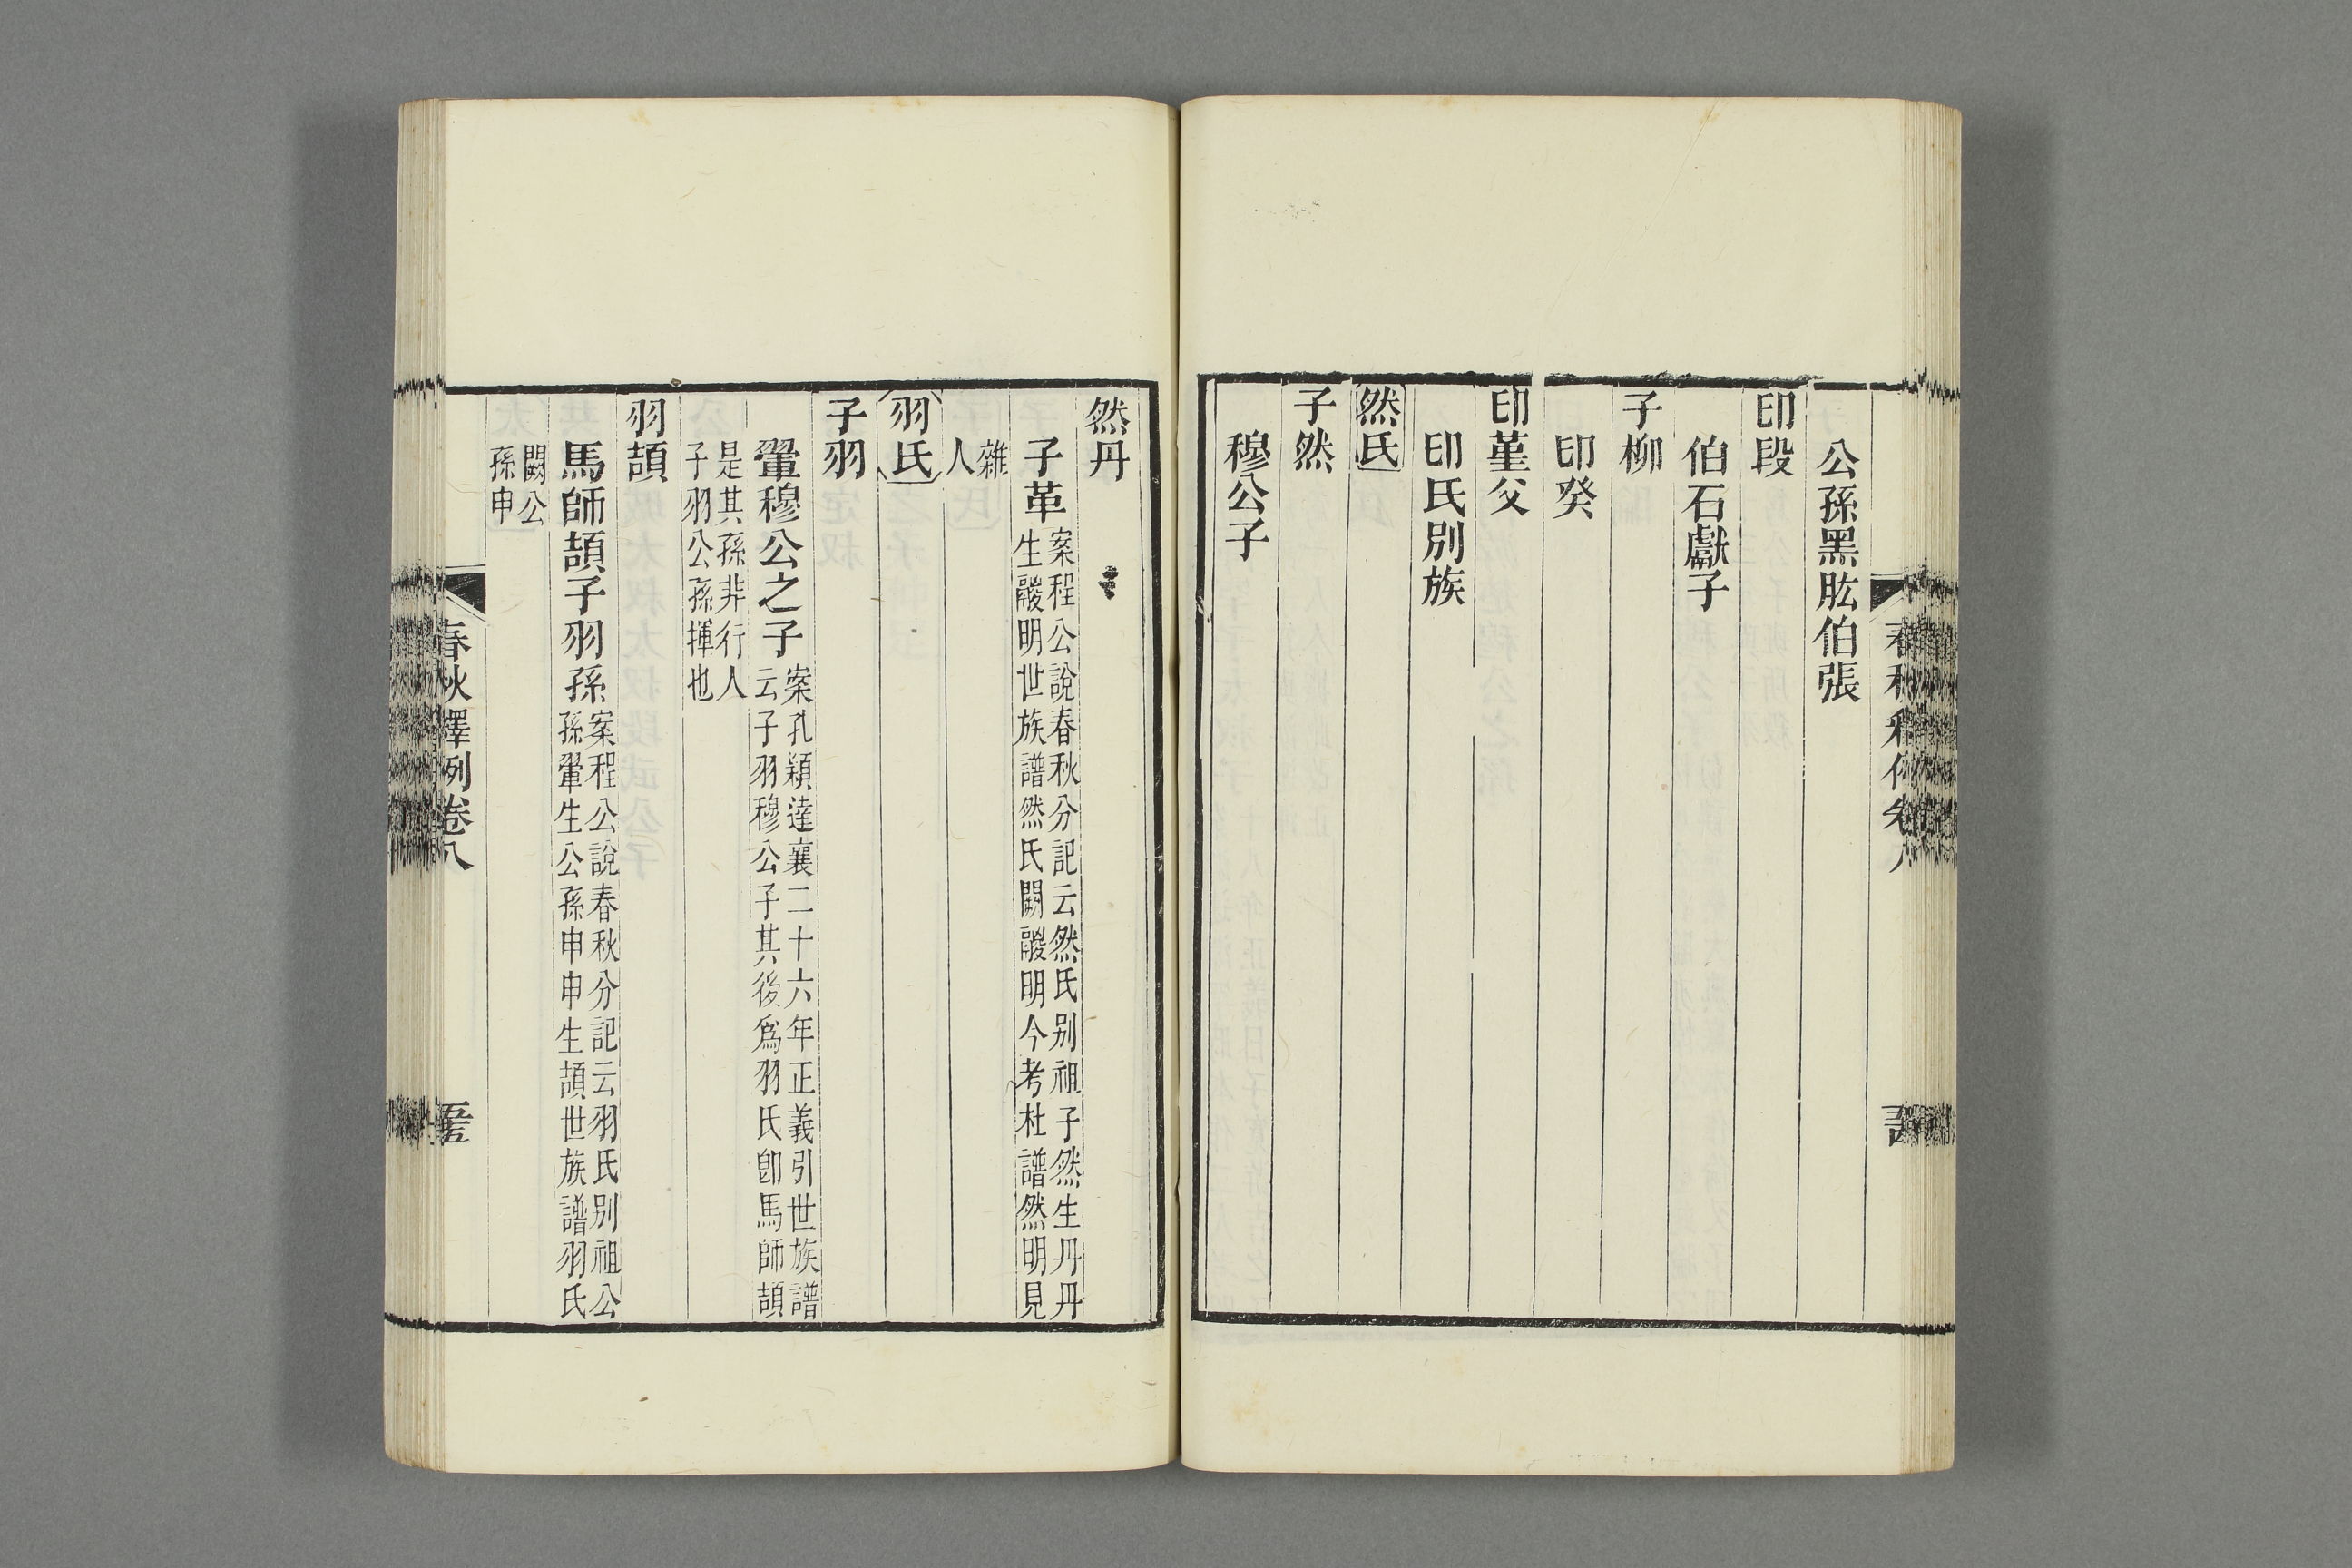 公孫黑肱伯張
印段
伯石獻子
子柳
印癸
印堇父
印氏別族
然氏
子然
穆公子
然丹
子革案程公說春秋分記云然氏别祖子然生丹丹
生鬷明世族譜然氏闕鬷明今考杜譜然明見
雜
人
羽氏
子羽
翬穆公之子案孔穎達襄二十六年正義引世族譜
云子羽穆公子其後爲羽氏卽馬師頡
是其孫非行人
子羽公孫揮也
羽頡
馬師頡子羽孫案程公說春秋分記云羽氏别祖公
孫翬生公孫申申生頡世族譜羽氏
闕公
孫申
春秋釋例卷八